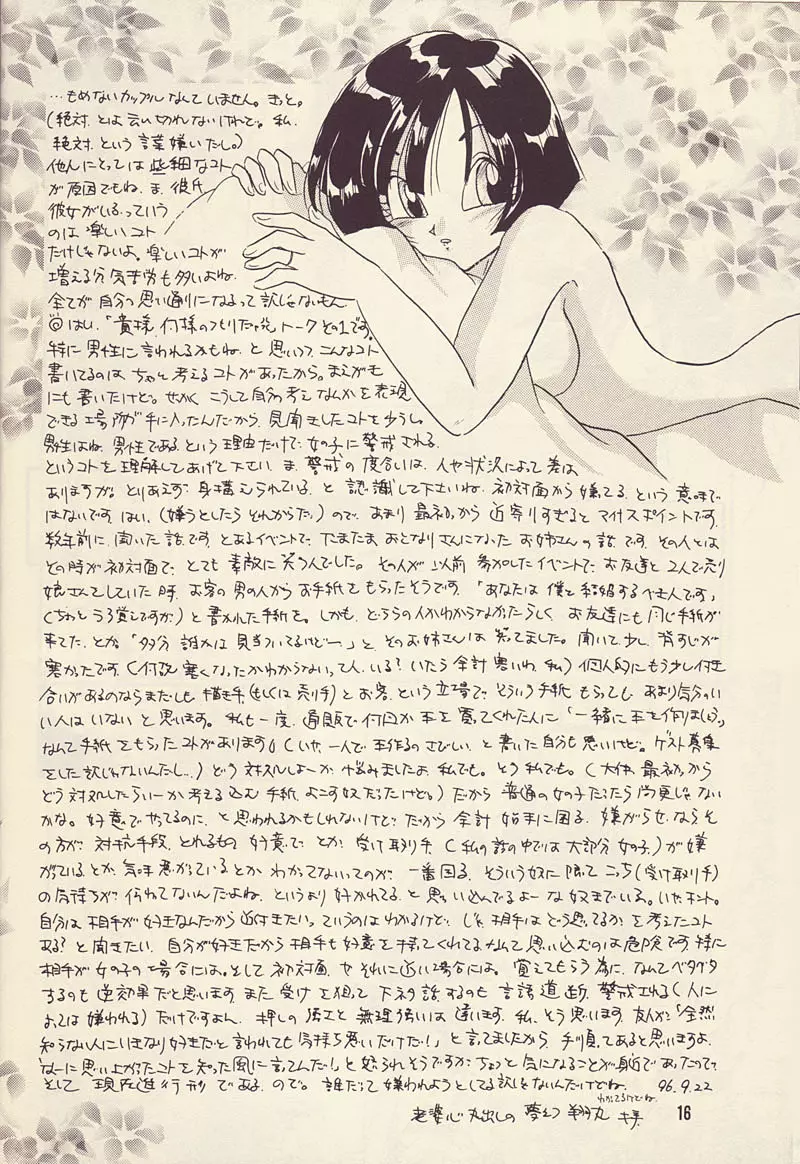 …もめないカップルなんていません。きっと。
(絶対、とは云い切れないけれど。私、
絶対、という言葉嫌いだし。)
他人にとっては些細なコト
が原因でもね、ま、彼氏
彼女がいるっていう
のは楽しいコト
だけじゃないよ。楽しいコトが
増える分気苦労も多いよね。
全てが自分の思い通りになるって訳じゃないもん
◎はい、「貴様、何様のつもりだ トーク その1です。
特に男性に言われるかもね、と思いつつ、こんなコト
書いてるのは ちゃんと考えるコトがあったから。まえがき
にも書いたけど。せっかくこうして自分の考えなんかを表現
できる場所が手に入ったんだから、見聞きしたコトを少し。
男性はね、男性である、という理由だけで女の子に警戒される、
というコトを理解してあげて下さい。ま、警戒の度合いは、人や状況によって差は
ありますが。とりあえず身構えられている、と認識して下さいね。初対面から嫌ってる、という意味で
はないです、はい。(嫌うとしたら それからだ。)ので、あまり最初から近寄りすぎると マイナスポイントです。
数年前に聞いた話です。とあるイベントで、たまたまおとなりさんになったお姉さんの話です。その人とは
その時が初対面で、とても素敵に笑う人でした。その人が以前参加したイベントで、お友達と2人で売り
娘さんをしていた時、お客の男の人からお手紙をもらったそうです。「あなたは僕と結婚するべき人です」
(ちょっとうろ覚えですが)と書かれた手紙を。しかも、どちらの人かわからなかったらしく、お友達にも同じ手紙が
来てた、とか。「多分誰かは見当ついてるけどー」と、そのお姉さんは笑ってました。聞いて少し、背すじが
寒かったです。(何故寒くなったかわからないって人、いる? いたら余計寒いわ、私)個人的にもう少し付き
合いがあるのならまだしも、描き手(もしくは売り手)とお客、という立場で、そういう手紙もらっても、あまり気分のい
い人はいないと思います。私も一度、通販で何回か本を買ってくれた人に「一緒に本を作りましょう」
なんて手紙をもらったコトがあります。(いや、一人で本作るのさびしい、と書いた自分も悪いけど。ゲスト募集
をした訳じゃないんだし…)どう対処しよーか悩みましたよ、私でも。そう私でも。(大体、最初っから
どう対処したらいーか考え込む手紙、よこす奴だったけど。)だから普通の女の子だったら尚更じゃない
かな。好意でやってるのに、と思われるかもしれないけど、だから余計始末に困る。嫌がらせならそ
の方が対抗手段、とれるもの。好意で、とか、受け取り手(私の話の中では大部分女の子)が嫌
がっているとか、気味悪がっているとかわかってないってのが、一番困る。そういう奴に限ってこっち(受け取り手)
の気持ちが伝わってないんだよね。というより好かれてる、と思い込んでるよーな奴までいる。いや、ホント。
自分は相手が好きなんだから近付きたい、っていうのはわかるけど、じゃ、相手はどう思ってるかを考えたコト
ある?と聞きたい。自分が好きだから相手も好意を持ってくれてるなんて思い込むのは危険です。特に
相手が女の子の場合には。そして初対面、や、それに近い場合には。覚えてもらう為に、なんてベタベタ
するのも逆効果だと思います。また受けを狙って下ネタ話するのも言語道断。警戒される(人に
よっては嫌われる)だけですよん。押しの強さと無理強いは違います。私、そう思います。友人が「全然
知らない人にいきなり好きだと言われても気持ち悪いだけだ!」と言ってましたから、手順ってあると思いますよ。
「なーに思い上がったコトを知った風に言ってんだ!」と怒られそうですが、ちょっと気になることが身近であったので。
そして現在進行形であるので。誰だって嫌われようとしてる訳じゃないんだけどね。 96.9.22
わかってるけどね。
老婆心丸出しの 夢幻 翔丸
16